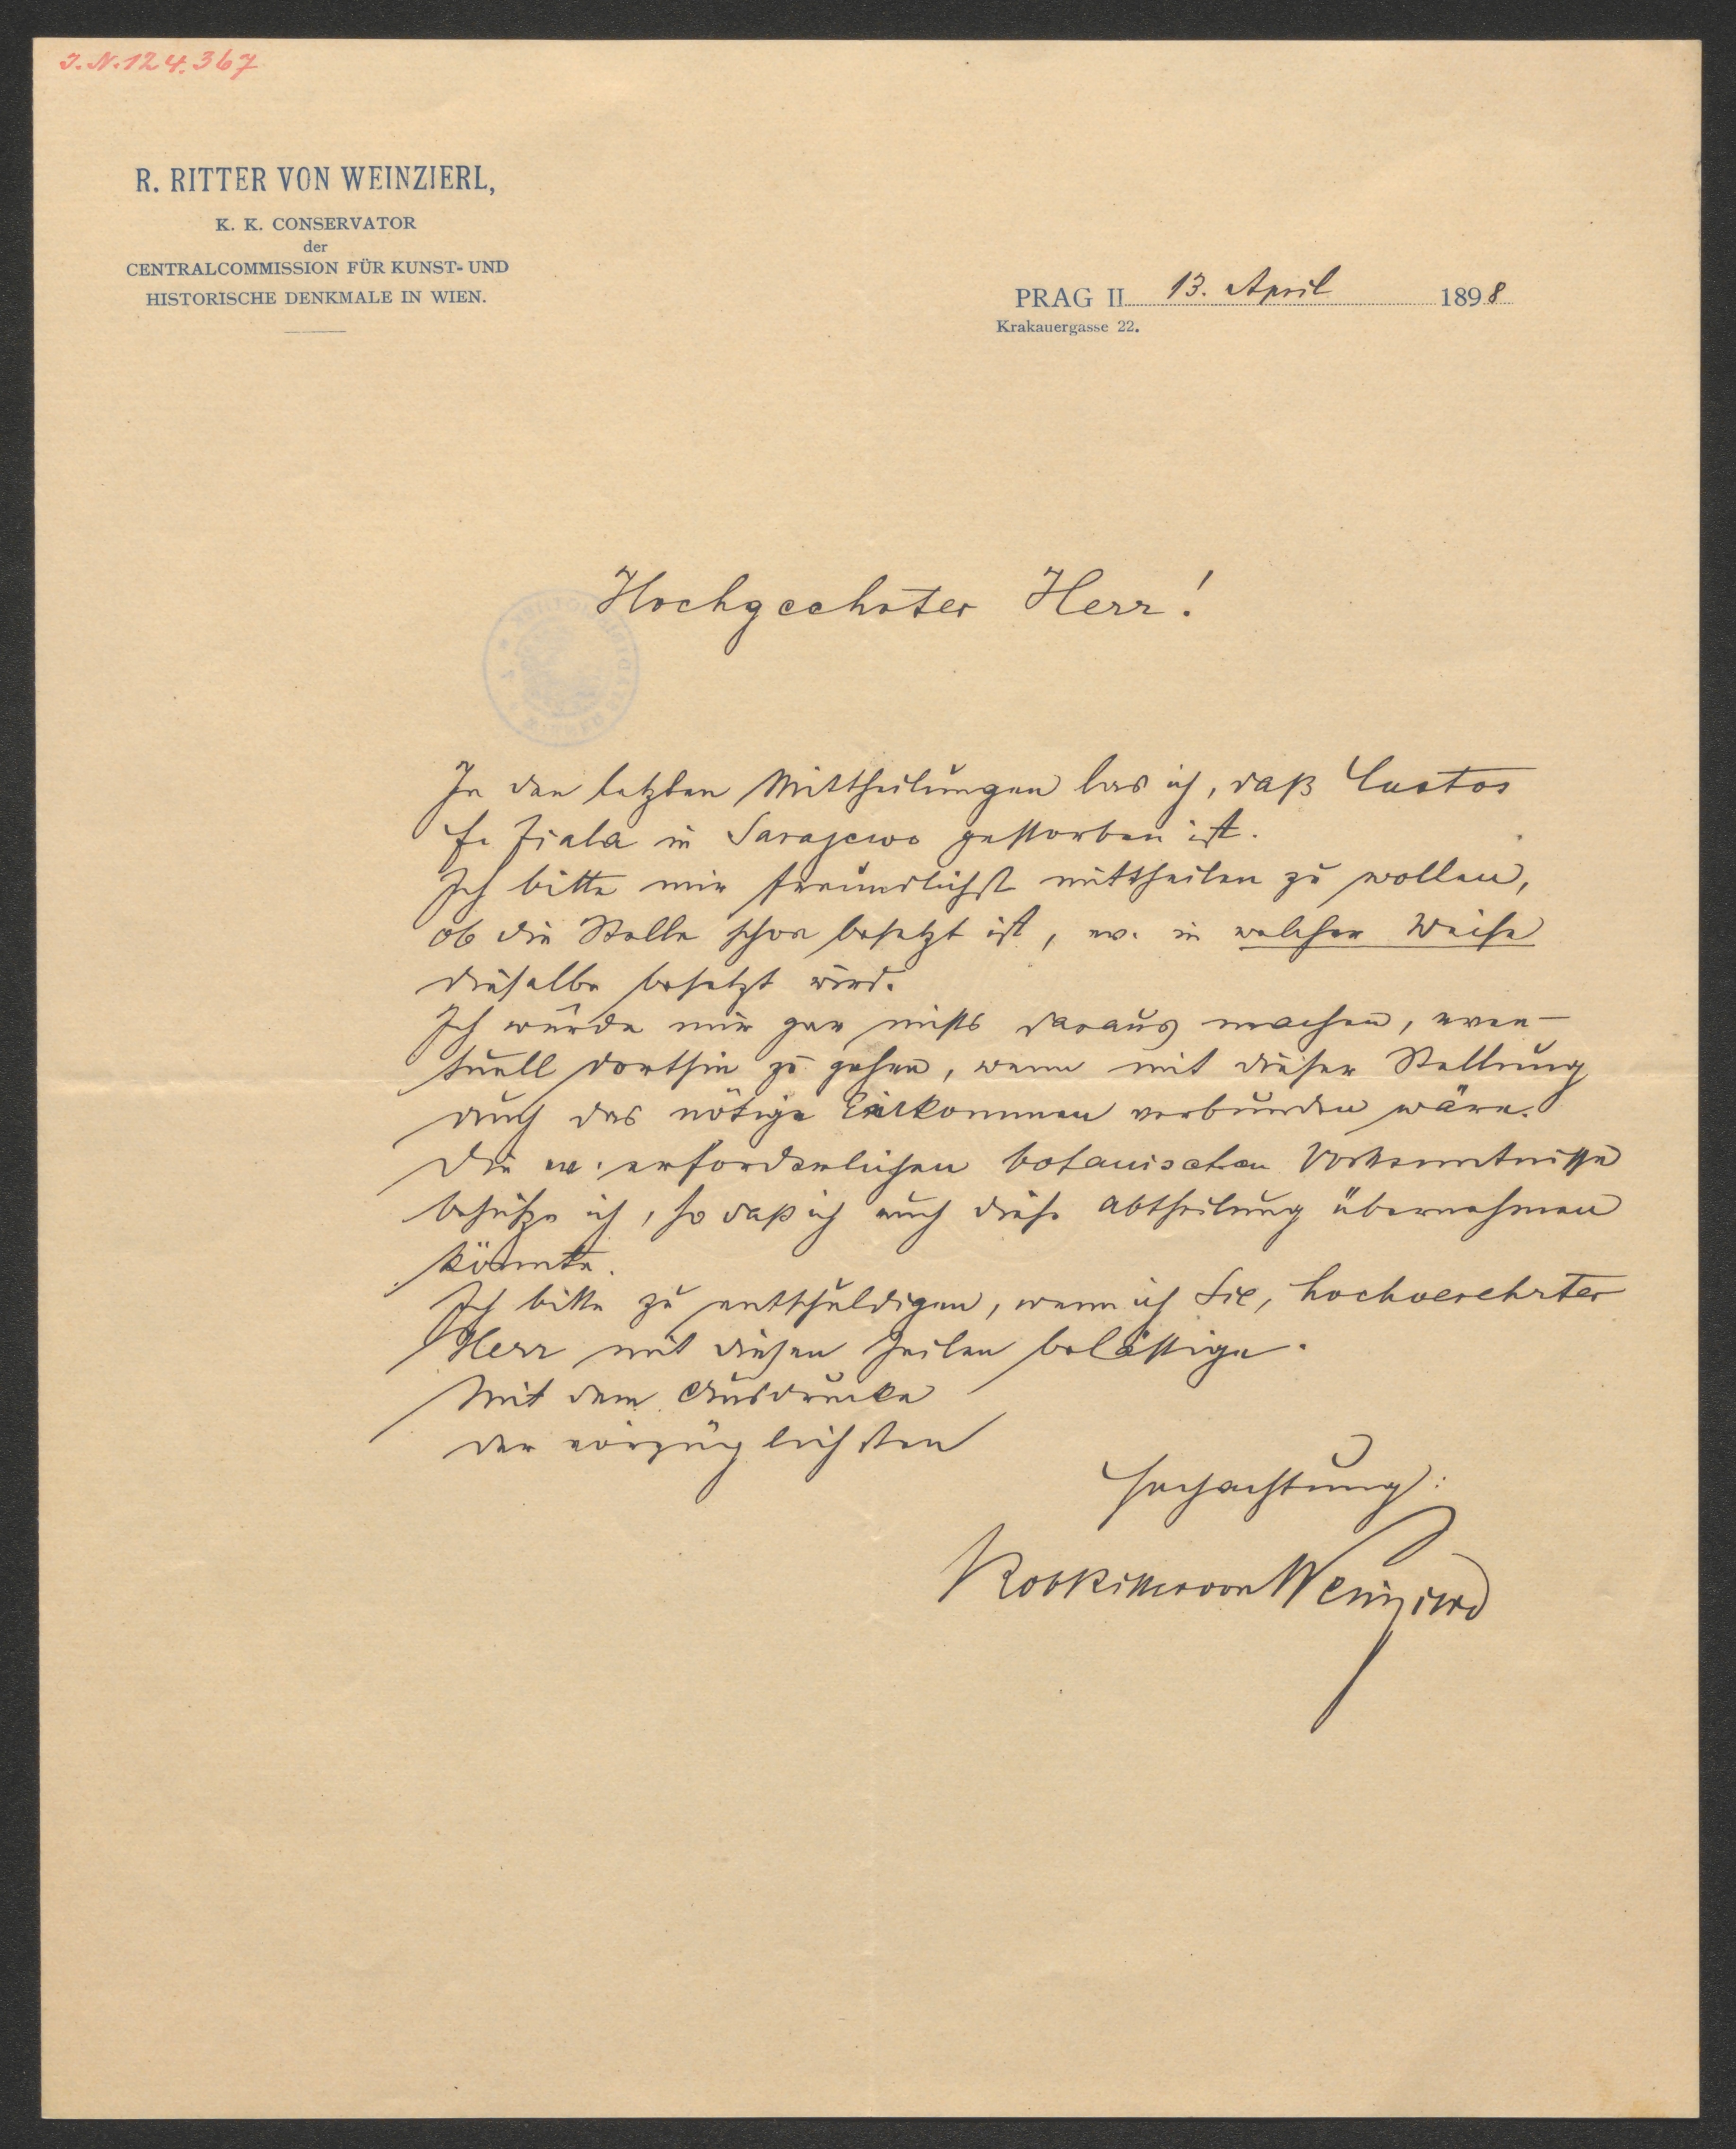 J.N. 124.367
R. RITTER VON WEINZIERL,
K. K. CONSERVATOR
der
CENTRALCOMMISSION FÜR KUNST- UND
HISTORISCHE DENKMALE IN WIEN.
PRAG II 13. April 1898
Krakauergasse 22.
Hochgeehrter Herr!
In den letzten Mittheilungen las ich, daß Custos
Fr. Fiala in Sarajewo gestorben ist.
Ich bitte mir freundlichst mittheilen zu wollen,
ob die Stelle schon besetzt ist, ev. in welcher Weise
dieselbe besetzt wird.
Ich würde mir gar nichts daraus machen, even-
tuell dorthin zu gehen, wenn mit dieser Stellung
auch das nötige Einkommen verbunden wäre.
Die ev. erforderlichen botanischen Vorkenntnisse
besitze ich, so daß ich auch diese Abtheilung übernehmen
könnte.
Ich bitte zu entschuldigen, wenn ich Sie, hochverehrter
Herr mit diesen Zeilen belästige.
Mit dem Ausdrucke
der vorzüglichsten
Hochachtung:
Rob Ritter von Weinzierl